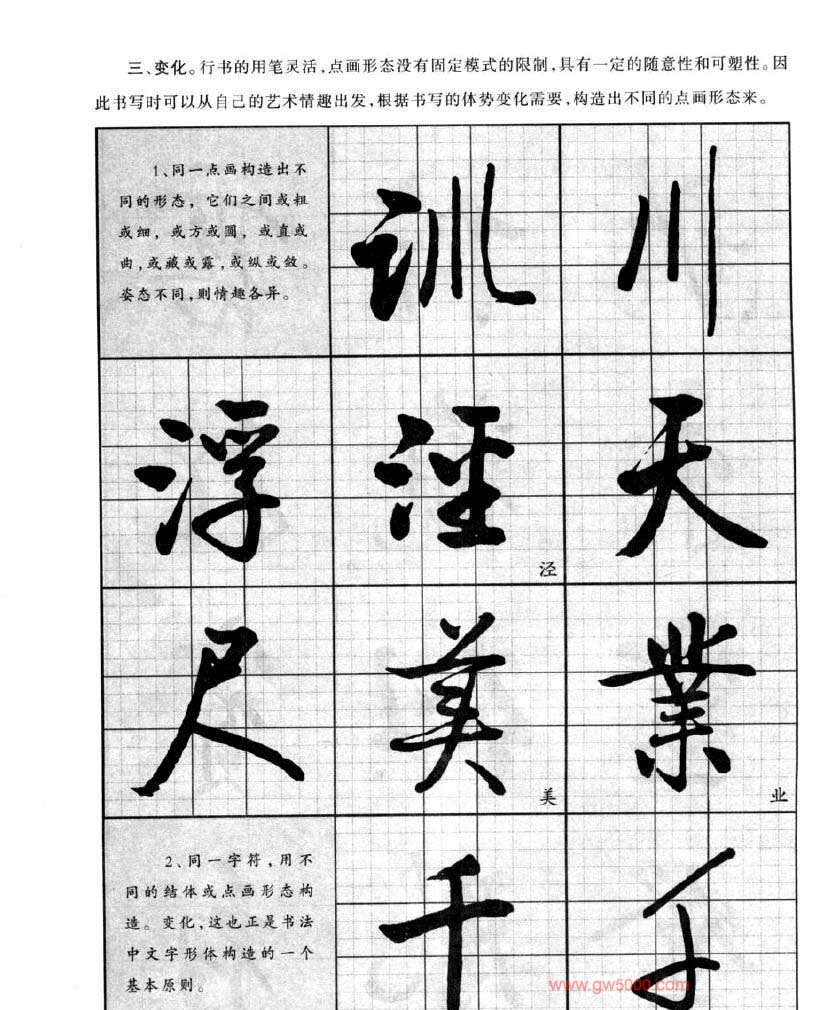 三、变化。行书的用笔灵活,点画形态没有固定模式的限制,具有一定的随意性和可塑性。因
此书写时可以从自己的艺术情趣出发,根据书写的体势变化需要,构造出不同的点画形态来。
1、同一点画构造出不
同的形态，它们之间或粗
或细，或方或圆，或直或
曲,或藏或露,或纵或敛。
姿态不同,则情趣各异。
训 川
浮 涇 天
泾
尺 美 業
美 业
2、同一字符，用不
同的结体或点画形态构
造。变化,这也正是书法
中文字形体构造的一个
基本原则。
千 千
www.gw5000.com